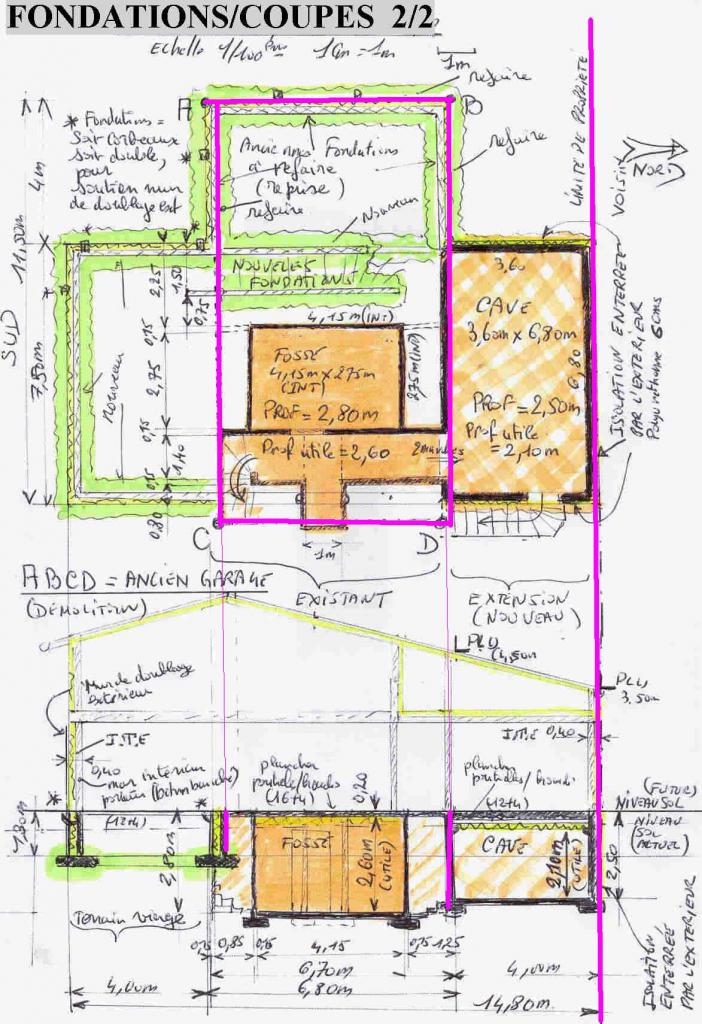 FONDATIONS/COUPES 2/2
Echelle 1/100 ème 1cm = 1m
1m
refaire
A
B
* Fondations =
Soit corbeaux
soit double,
pour
soutien mur
de doublage est
Anciennes Fondations
à refaire
(reprise)
refaire
refaire
nouveau
LIMITE DE PROPRIETE
VOISIN
NORD
4m
11,50m
SUD
7,50m
NOUVELLES
FONDATIONS
nouveau
2,25
1,50
0,75
0,15
2,75
0,15
1,40
0,15
0,80
4,15m (INT)
FOSSE
4,15m x 275m
(INT)
PROF = 2,80m
275m (INT)
Prof utile = 2,60
3,60
CAVE
3,60m x 6,80m
6,80
PROF = 2,50m
Prof utile
= 2,10m
ISOLATION ENTERREE
PAR L'EXTERIEUR
Polyuréthane 6cms
C
D
1m
ABCD = ANCIEN GARAGE
(DEMOLITION)
EXISTANT
EXTENSION
(NOUVEAU)
PLU
4,50m
PLU
3,50m
Mur de doublage
extérieur
I.T.E
I.T.E 0,40
0,40
mur intérieur
porteur
plancher
(16+4)
0,20
plancher
(12+4)
(12+4)
(FUTUR)
NIVEAU SOL
NIVEAU
SOL
(ACTUEL)
1,80m
2,80m
FOSSE
2,60m
(UTILE)
CAVE
2,10m
(UTILE)
2,50
Terrain vierge
0,15
0,85
0,15
4,15
0,15
1,25
6,70m
4,00m
4,00m
6,80m
14,80m
ISOLATION
ENTERRÉE
PAR L'EXTERIEUR